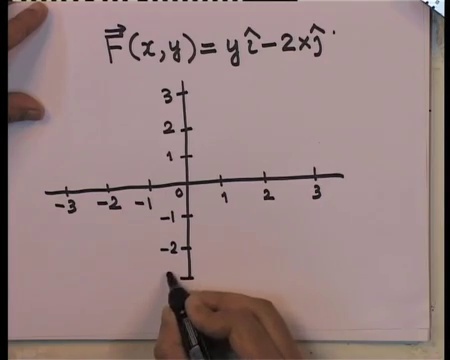 F⃗(x,y) = yî - 2xĵ
3
2
1
-3 -2 -1 0 1 2 3
-1
-2